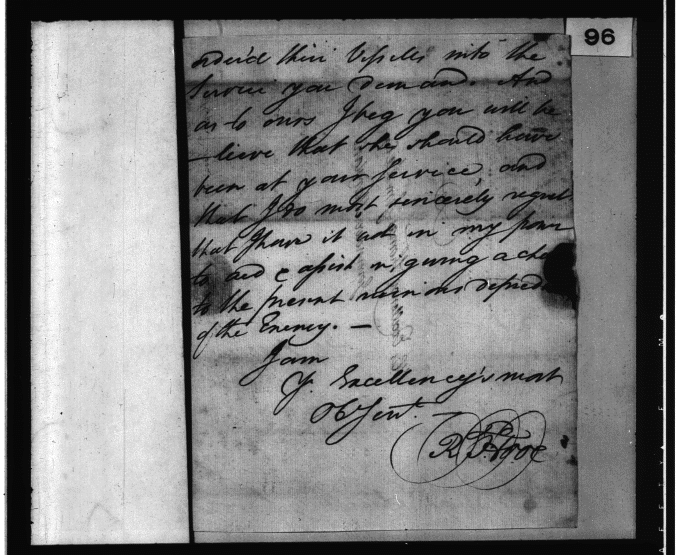 96
orderd their Vessells into the
Service you demand. And
as to ours I beg you will be
-lieve that she should have
been at your Service, and
that I do most sincerely regret
that I have it not in my power
to aid & assist in giving a
to the present
of the Enemy. —
I am
Yr. Excellency's most
Ob Servt.
R.